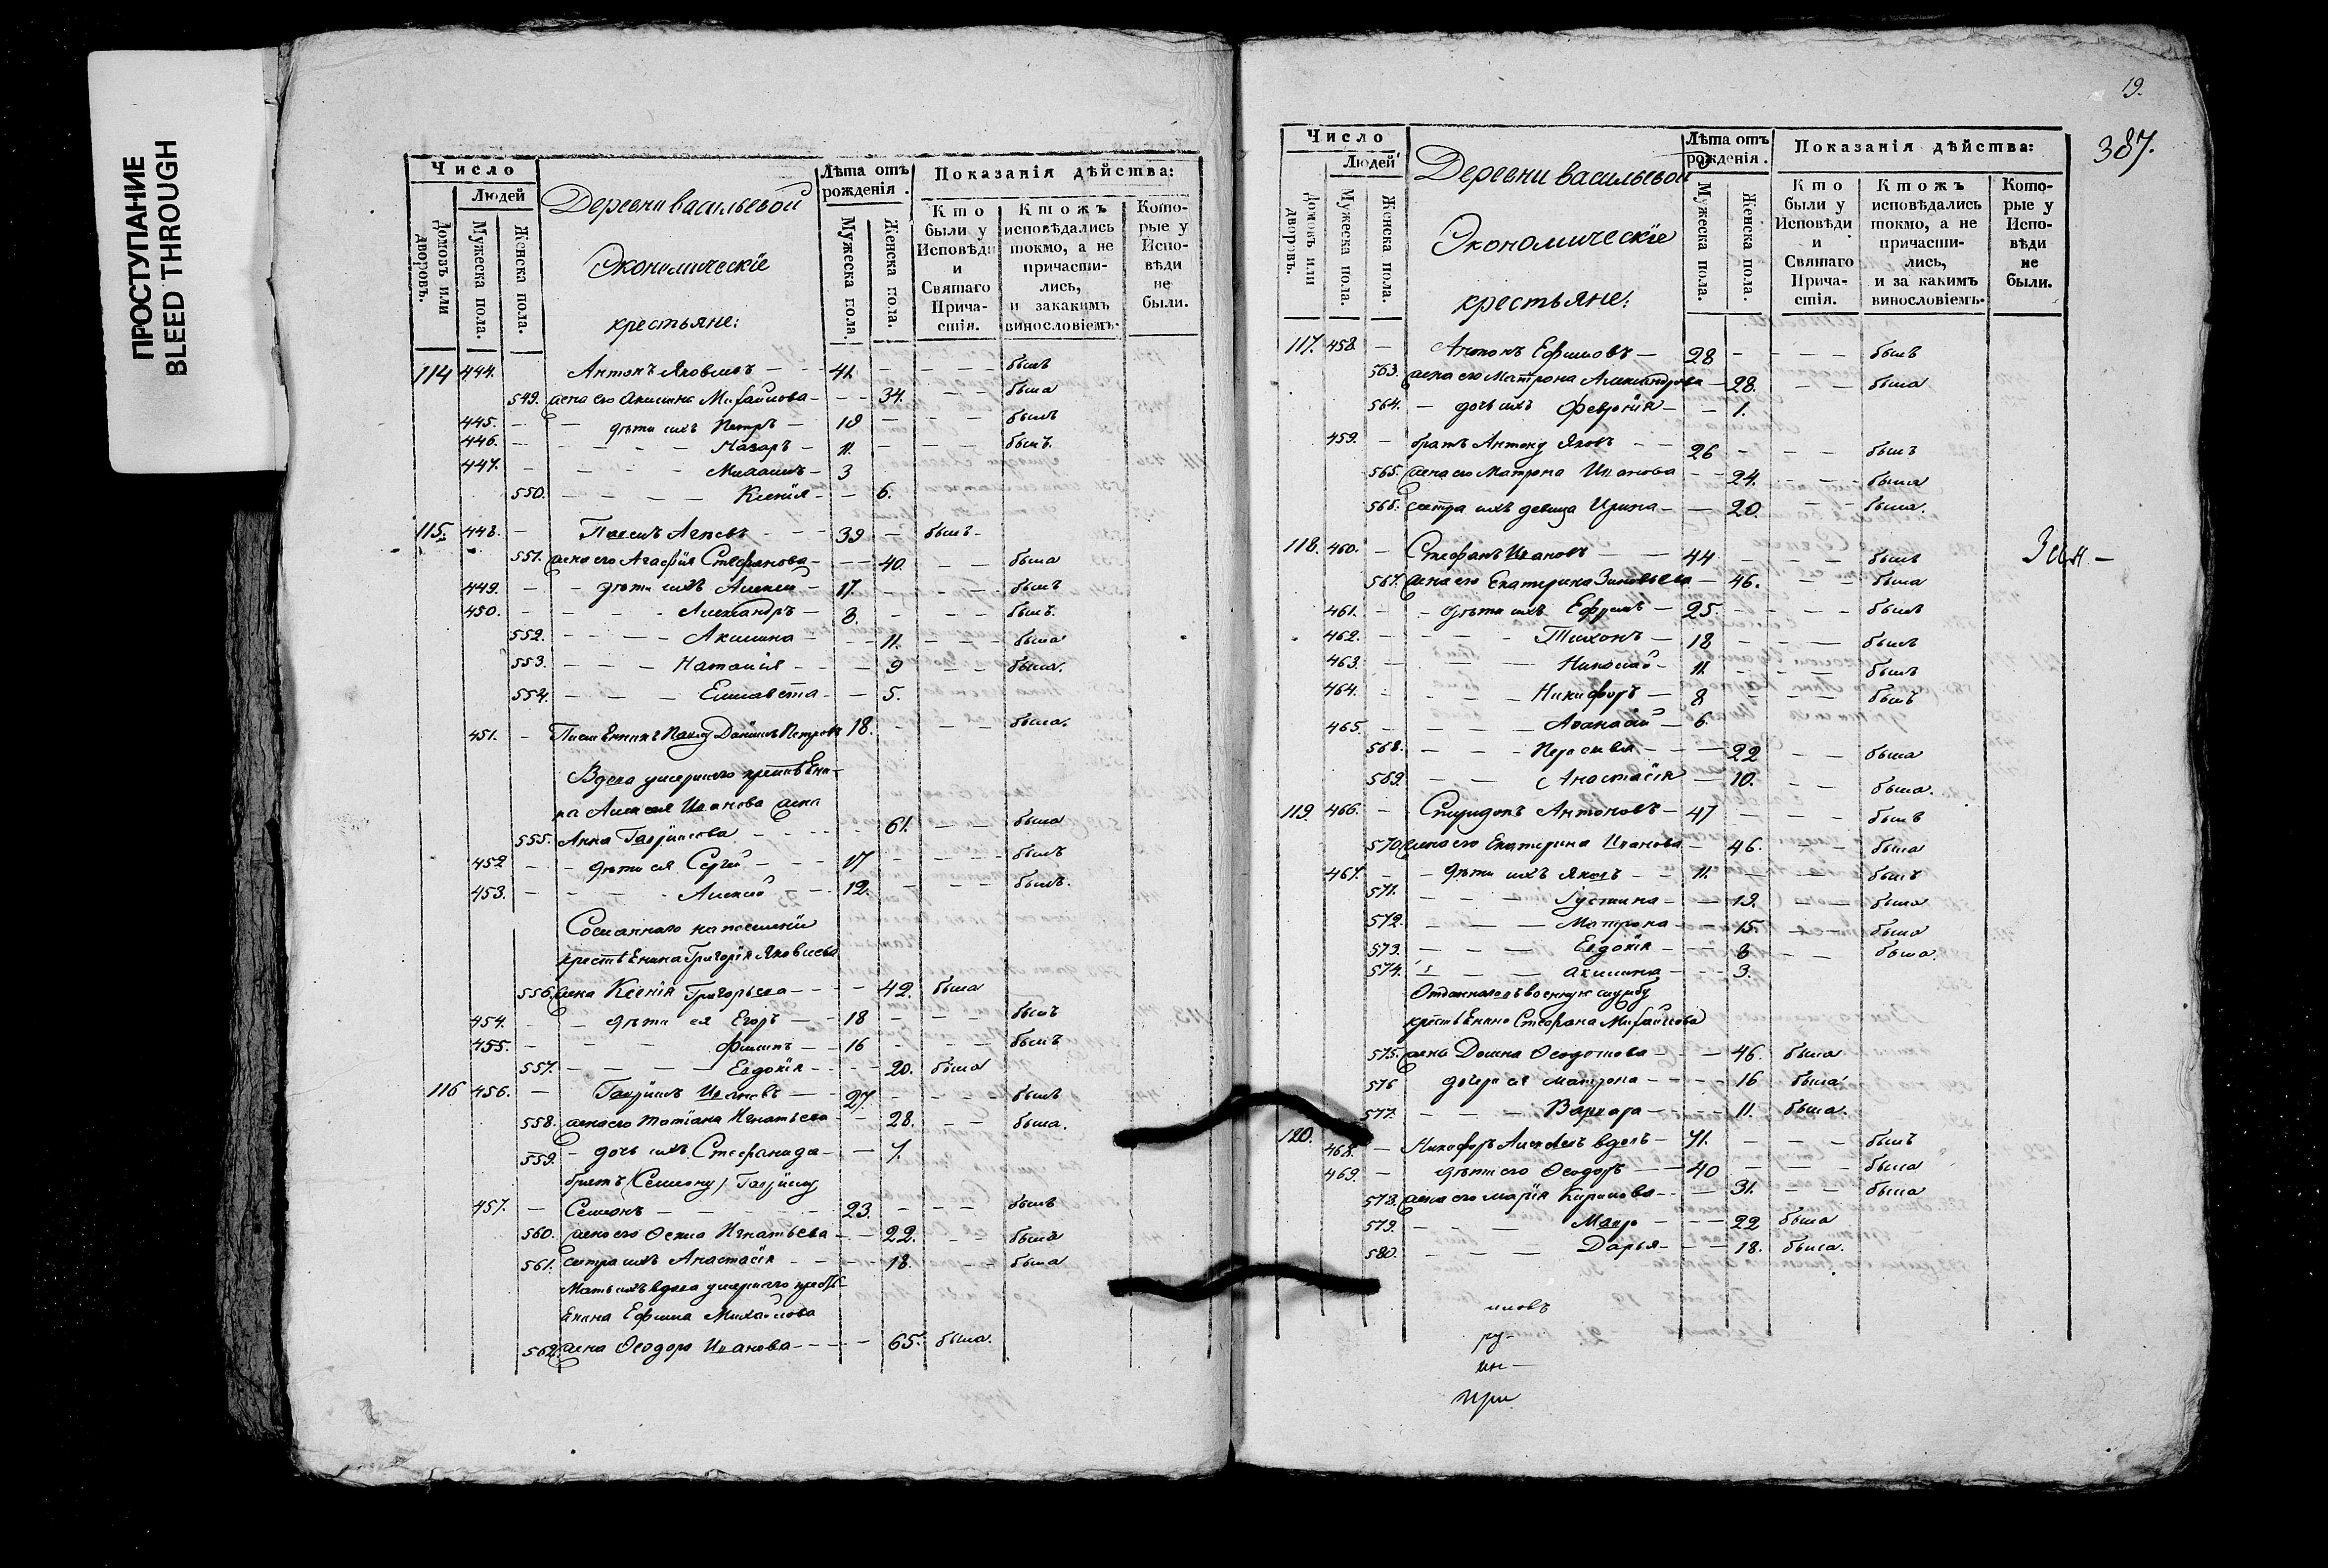 ПРОСТУПАНИЕ
BLEED THROUGH
Число
Людей
Домовъ или дворовъ.
Мужеска пола.
Женска пола.
Деревни васильевой
Экономическїе
крестьяне:
Лѣта отъ рожденія.
Мужеска пола
Женска пола.
Показанія дѣйства:
Кто были у Исповѣди и Святаго Причастія.
Ктожъ исповѣдались токмо, а не причастились, и закакимъ винословіемъ.
Которые у Исповѣди не были.
114 444. Антонъ Яковлевъ 41. былъ
549. жена его Акилина Михайлова 34. была
445. дѣти ихъ Петръ 19 былъ
446. Назаръ 11. былъ.
447. Михаилъ 3
550. Ксенїя 6.
115. 448. 39 былъ
551. жена его Агафїя Стефанова 40. была
449. дѣти ихъ Алексѣй 17. былъ
450. Александръ 8. былъ.
552. Акилина 11. была
553. Наталїя 9 была.
554. Елисавета 5.
451. Данїилъ Петровъ 18. была.
Вдова умершаго крестьѣни-
на Алексѣя Иванова жена
555. Анна Гаврїилова 61. была
452 дѣти ея Сергѣй 17 былъ
453. Алексѣй 12. былъ.
Сосланнаго на поселенїи
крестьѣнина Григорїя Яковлева
556. жена Ксенїя Григорьева 42. была
454. дѣти ея Егоръ 18 былъ
455. Филипъ 16 былъ
557. Евдокїя 20. была
116 456. Гаврїилъ Ивановъ 27 былъ
558. жена его Татїана Игнатьева 28. была.
559. дочь ихъ Стефанида 1.
братъ (Семиону) Гаврїилу
457. Семионъ 23. былъ
560. жена его Ѳекла Игнатьева 22. была
561. сестра ихъ Анастасїя 18. была
Мать ихъ вдова умершаго кресть-
ѣнина Ефима Михайлова
562. жена Ѳеодора Иванова 65. была.
19.
387.
Число
Людей
Домовъ или дворовъ.
Мужеска пола.
Женска пола.
Деревни васильевой
Экономическїе
крестьяне:
Лѣта отъ рожденія.
Мужеска пола.
Женска пола.
Показанія дѣйства:
Кто были у Исповѣди и Святаго Причастія.
Ктожъ исповѣдались токмо, а не причастились, и за какимъ винословіемъ.
Которые у Исповѣди не были.
117. 458. Антонъ Ефимовъ 28 былъ
563. жена его Матрона Александрова 28. была
564. дочь ихъ Феврония 1.
459. братъ Антону Яковъ 26 былъ
565. жена его Матрона Иванова 24. была
566. сестра ихъ девица Ирина 20. была.
118. 460. Стефанъ Ивановъ 44 былъ
567. жена его Екатерина Зиновьева 46. была
461. дѣти ихъ Ефремъ 25 былъ
462. Тихонъ 18 былъ
463. Николай 11. былъ
464. Никифоръ 8 былъ
465. Аѳанасїй 6.
568. 22 была
569. Анастасїя 10. была.
119. 466. Спиридонъ Антоновъ 47 былъ
570. жена его Екатерина Иванова 46. была
467. дѣти ихъ Яковъ 11. былъ
571. Іустина 19. была
572. Матрона 15. была
573. Евдокїя 8 была.
574. Акилина 3.
Отданнаго въ военную службу
крестьѣнина Стефана Михайлова
575. жена Домна Ѳеодотова 46. была
576 дочери ея Матрона 16 была
577. Варвара 11. была.
120. 468. Никифоръ Алексѣевъ вдовъ 71. былъ
469. дѣти его Ѳеодоръ 40 была
578. жена его Марїя Кирилова 31. была
579. Мавра 22 была
580. Дарья 18. была.
иновъ
ру-
ин-
при